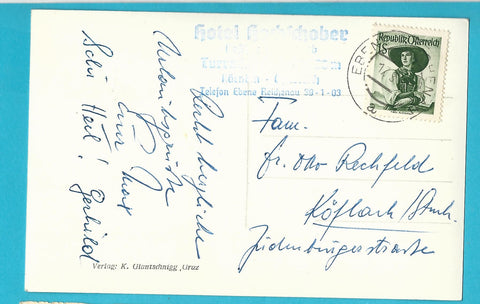 Hotel Hochschober
Turracher
Kärnten
Telefon Ebene Reichenau 39-1-03
Republik Österreich
1 S
EBENE
a
Recht herzliche
Urlaubsgrüße
Eure
Schi Heil! Gerhild
Fam.
Otto Rechfeld
Köflach / Stmk.
Judenburgerstraße
Verlag: K. Glantschnigg, Graz